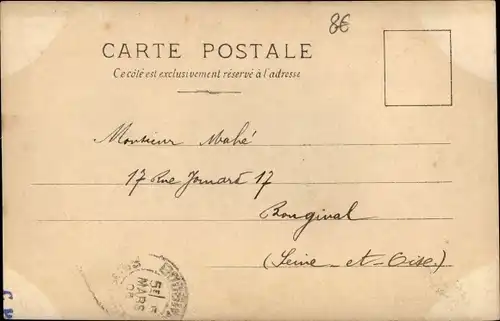 8€
CARTE POSTALE
Ce côté est exclusivement réservé à l'adresse
Monsieur Mahé
17 Rue 17
Bougival
(Seine-et-Oise)
MARS